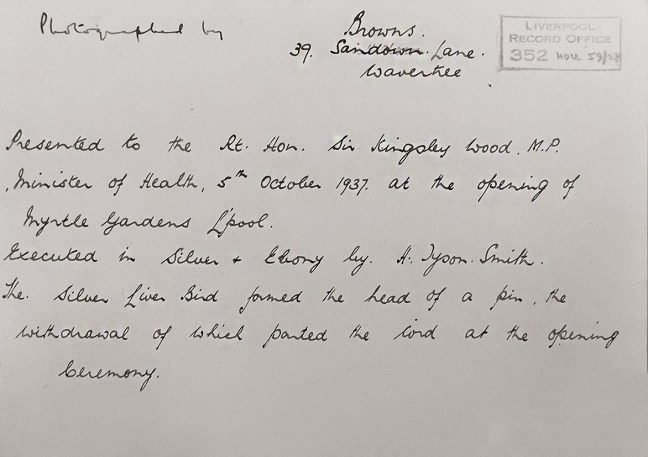 Photographed by Browns.
39. Sandown. Lane.
Wavertree
LIVERPOOL
RECORD OFFICE
352 HOU 59/27
Presented to the Rt. Hon. Sir Kingsley Wood. M.P.
Minister of Health, 5th October 1937. at the opening of
Myrtle Gardens L'pool.
Executed in Silver + Ebony by. H. Tyson. Smith.
The. Silver Liver Bird formed the head of a pin, the
withdrawal of which parted the cord at the opening
Ceremony.